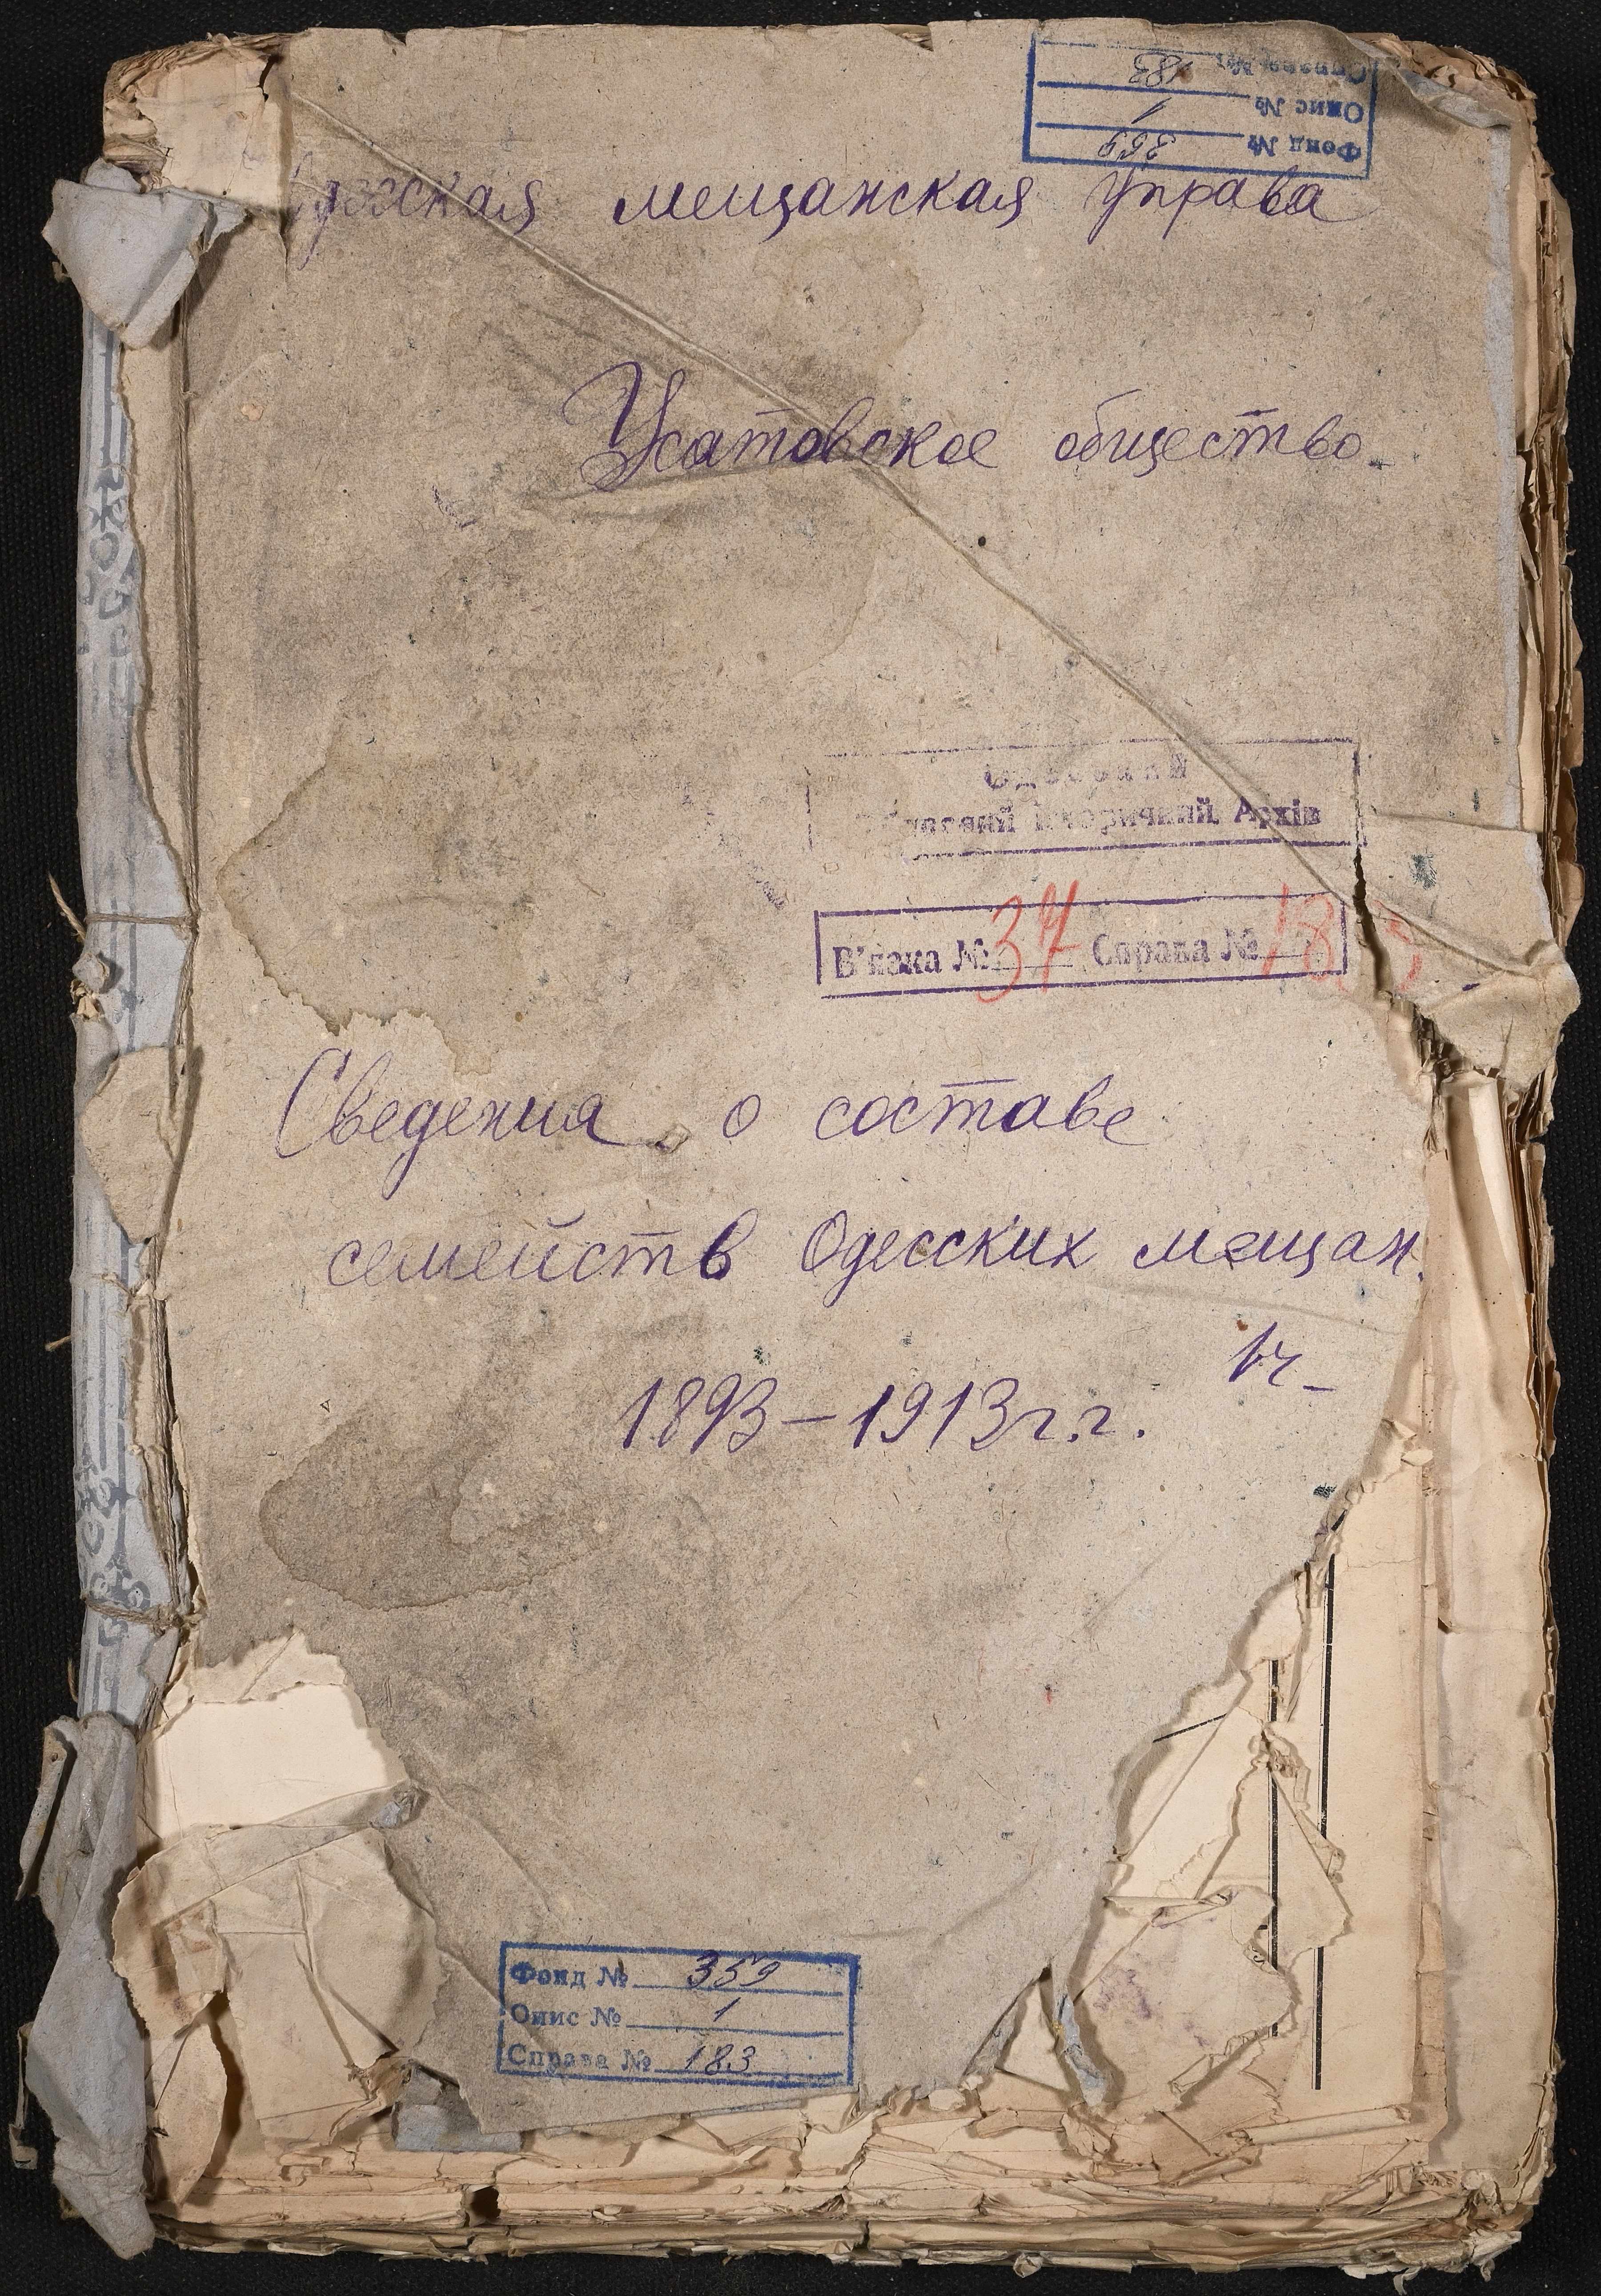 Фонд № 359
Опис № 1
Справа № 183
Одесская мещанская управа
Усатовское общество.
Одеський
Історичний Архів
В'язка № 37 Справа № 183
Сведения о составе
семейств Одесских мещан.
1893–1913 г.г.
Фонд № 359
Опис № 1
Справа № 183